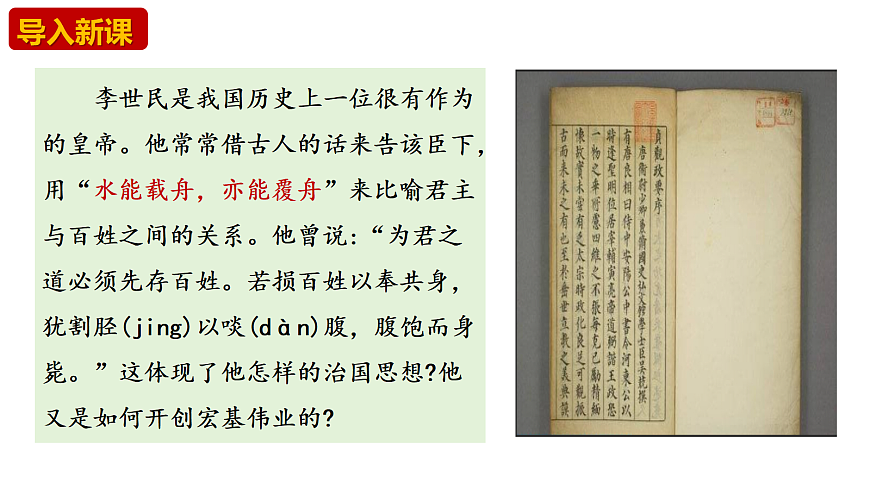 导入新课
李世民是我国历史上一位很有作为
的皇帝。他常常借古人的话来告该臣下，
用“水能载舟，亦能覆舟”来比喻君主
与百姓之间的关系。他曾说：“为君之
道必须先存百姓。若损百姓以奉共身，
犹割胫(jing)以啖(dàn)腹，腹饱而身
毙。”这体现了他怎样的治国思想?他
又是如何开创宏基伟业的?
貞觀政要序
唐衛尉少卿兼脩國史弘文館學士臣吳兢撰
有唐良相曰侍中安陽公中書令河東公以
時逢聖明位居宰輔寅亮帝道弼諧王政恐
一物之乖所慮四維之不張每克己勵精緬
懷故實未嘗有乏太宗時政化良足可觀振
古而來未之有也至於垂世立教之美典謨